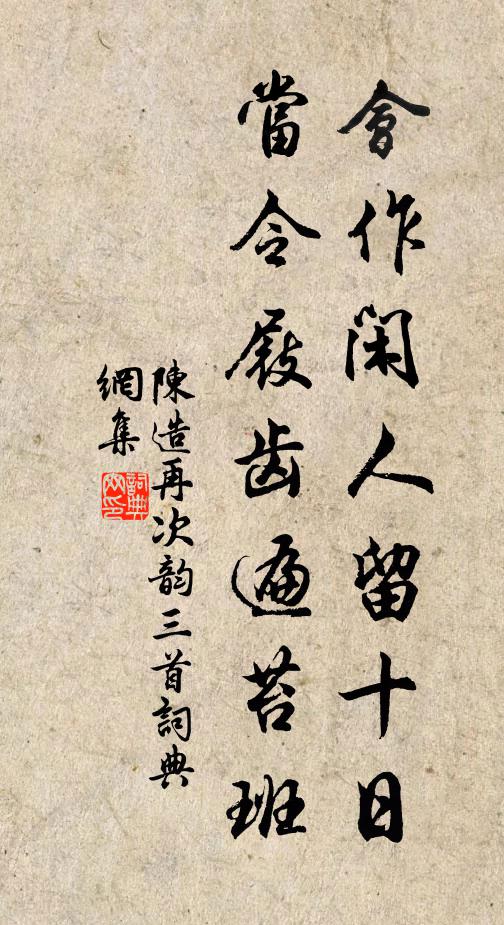 會作閑人留十日
當令屐齒遍苔班
陳造再次韵三首詞典
網集
詞典
網印